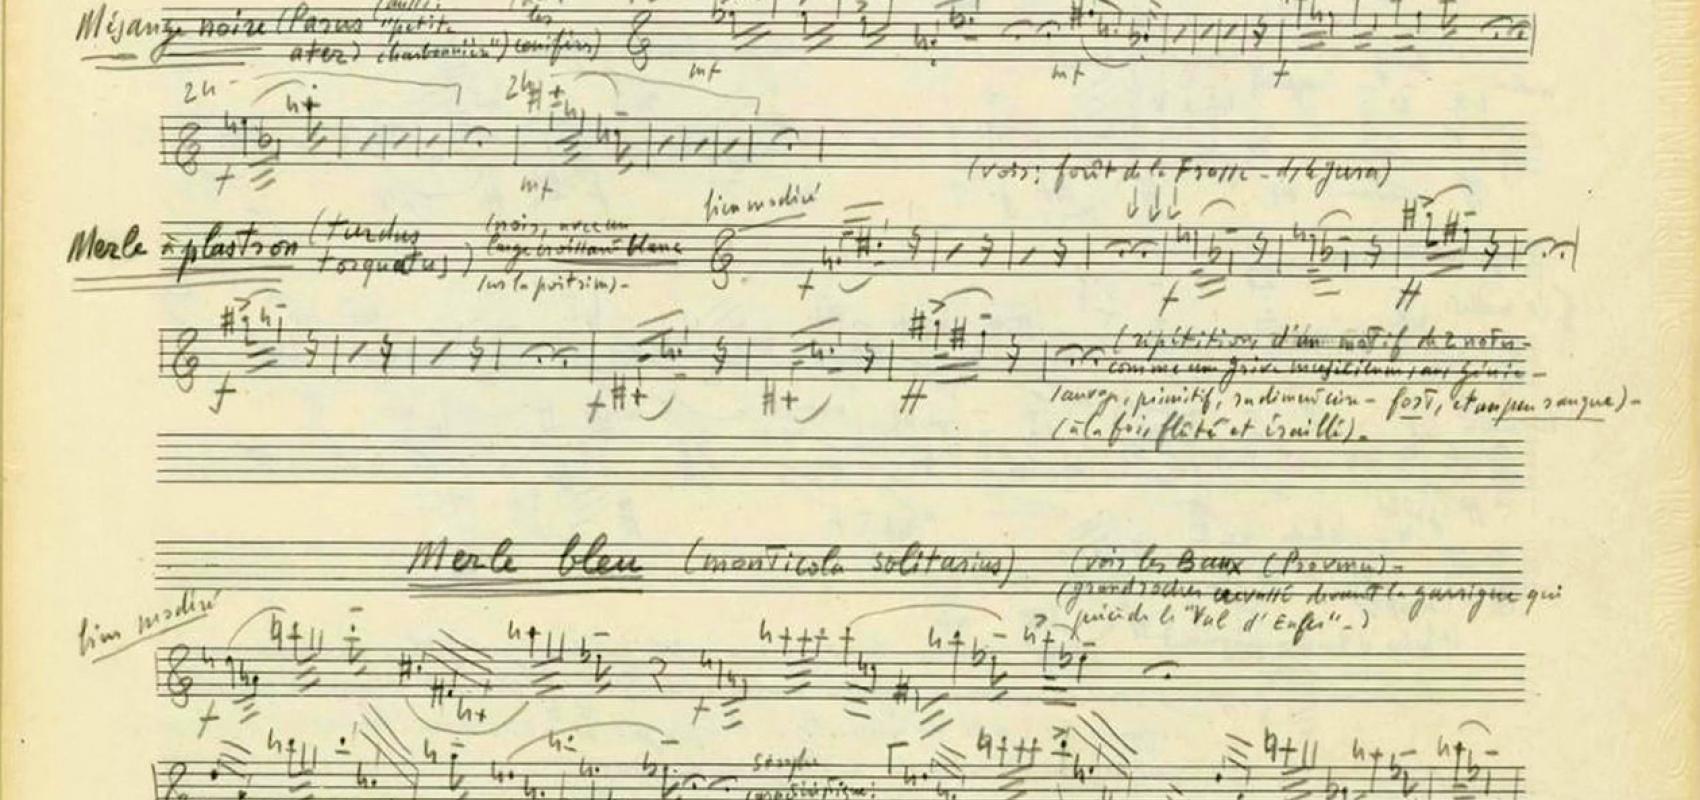 Mésange noire (Parus "petite les
ater) charbonnière") conifères)
mf mf f
2h - 2h
f mf
(voir: forêt de la Fresse - ds le Jura)
bien modéré
Merle à plastron (turdus (noir, avec un
torquatus) large croissant blanc
sur la poitrine) -
f f ff
(répétition d'un motif de 2 notes -
comme une grive musicienne sans génie -
sauvage, primitif, rudimentaire - fort, et un peu rauque) -
(à la fois flûté et éraillé) -
f f ff
Merle bleu (monticola solitarius) (voir les Baux (Provence) -
(grand rocher crevassé devant la garrigue qui
précède le "Val d'Enfer" -)
bien modéré
f f
strophe
caractéristique: